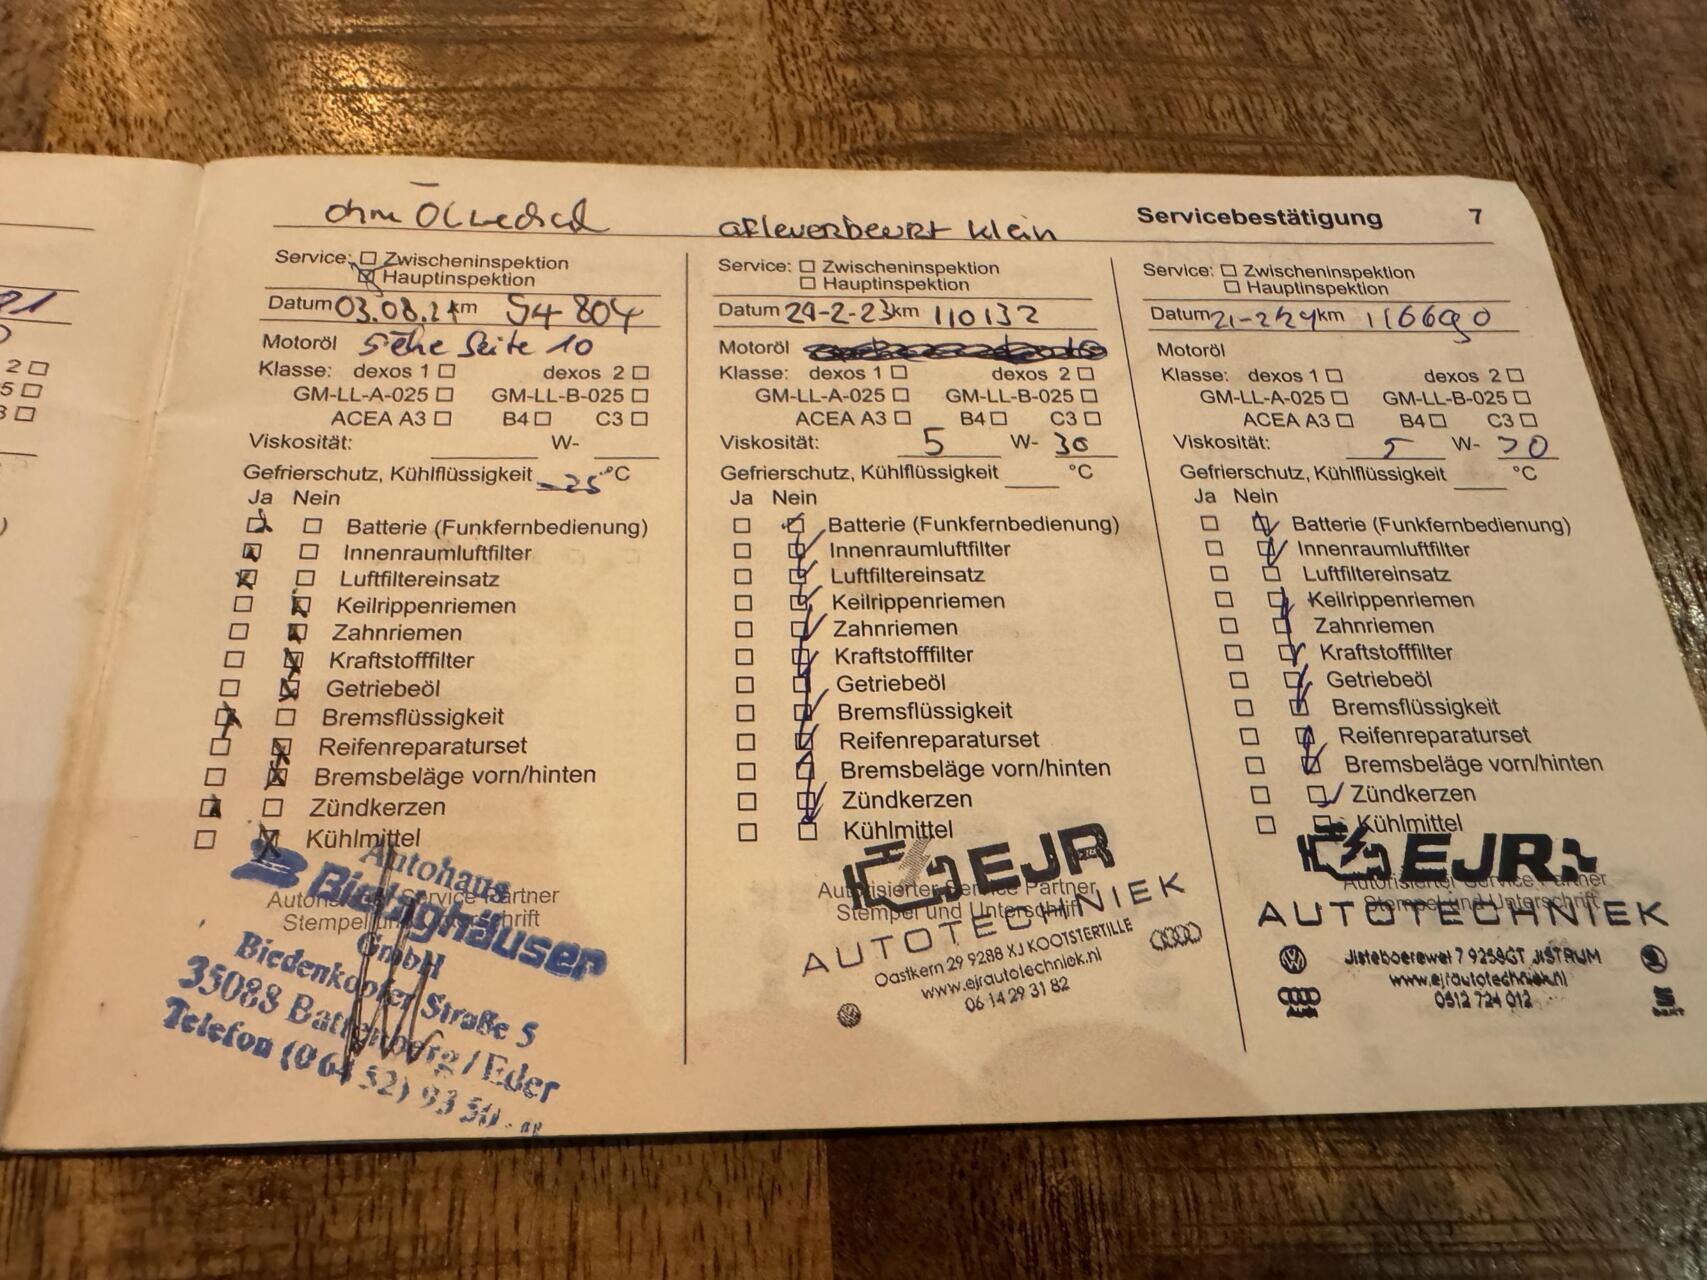 ohne Ölwechsel
Service: Zwischeninspektion
Hauptinspektion
Datum 03.08.21 km 94 804
Motoröl Siehe Seite 10
Klasse: dexos 1 dexos 2
GM-LL-A-025 GM-LL-B-025
ACEA A3 B4 C3
Viskosität: W-
Gefrierschutz, Kühlflüssigkeit -25 °C
Ja Nein
Batterie (Funkfernbedienung)
Innenraumluftfilter
Luftfiltereinsatz
Keilrippenriemen
Zahnriemen
Kraftstofffilter
Getriebeöl
Bremsflüssigkeit
Reifenreparaturset
Bremsbeläge vorn/hinten
Zündkerzen
Kühlmittel
Autorisierter Service Partner
Stempel und Unterschrift
Autohaus
GmbH
Biedenkopfer Straße 5
35088 Battenberg / Eder
Telefon (0 64 52) 93 50
afleverbeurt klein
Service: Zwischeninspektion
Hauptinspektion
Datum 24-2-23 km 110132
Motoröl
Klasse: dexos 1 dexos 2
GM-LL-A-025 GM-LL-B-025
ACEA A3 B4 C3
Viskosität: 5 W- 30
Gefrierschutz, Kühlflüssigkeit °C
Ja Nein
Batterie (Funkfernbedienung)
Innenraumluftfilter
Luftfiltereinsatz
Keilrippenriemen
Zahnriemen
Kraftstofffilter
Getriebeöl
Bremsflüssigkeit
Reifenreparaturset
Bremsbeläge vorn/hinten
Zündkerzen
Kühlmittel
Autorisierter Service Partner
Stempel und Unterschrift
EJR
AUTOTECHNIEK
Oastkern 29 9288 XJ KOOTSTERTILLE
www.ejrautotechniek.nl
06 14 29 31 82
Servicebestätigung 7
Service: Zwischeninspektion
Hauptinspektion
Datum 21-2-24 km 116690
Motoröl
Klasse: dexos 1 dexos 2
GM-LL-A-025 GM-LL-B-025
ACEA A3 B4 C3
Viskosität: 5 W- 30
Gefrierschutz, Kühlflüssigkeit °C
Ja Nein
Batterie (Funkfernbedienung)
Innenraumluftfilter
Luftfiltereinsatz
Keilrippenriemen
Zahnriemen
Kraftstofffilter
Getriebeöl
Bremsflüssigkeit
Reifenreparaturset
Bremsbeläge vorn/hinten
Zündkerzen
Kühlmittel
Autorisierter Service Partner
Stempel und Unterschrift
EJR
AUTOTECHNIEK
Jisteboerewei 7 9258GT JISTRUM
www.ejrautotechniek.nl
0512 724 012